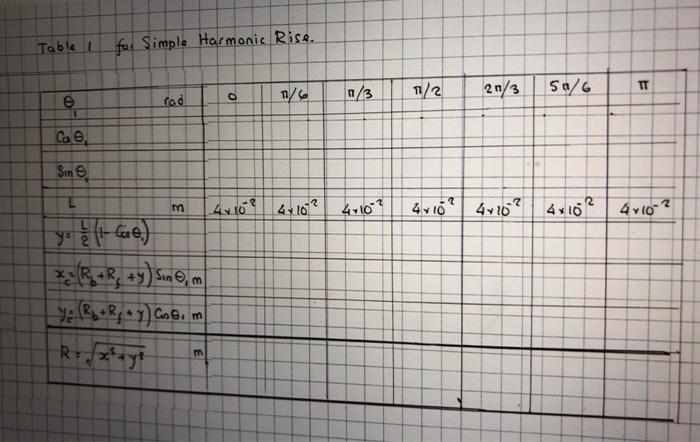 Table 1 for Simple Harmonic Rise.
θ₁ rad 0 π/6 π/3 π/2 2π/3 5π/6 π
Cos θ₁
Sin θ₁
L m 4×10⁻² 4×10⁻² 4×10⁻² 4×10⁻² 4×10⁻² 4×10⁻² 4×10⁻²
y = L/2 (1 - Cos θ₁)
x_c = (R_b + R_f + y) Sin θ₁ m
y_c = (R_b + R_f + y) Cos θ₁ m
R = √x² + y² m